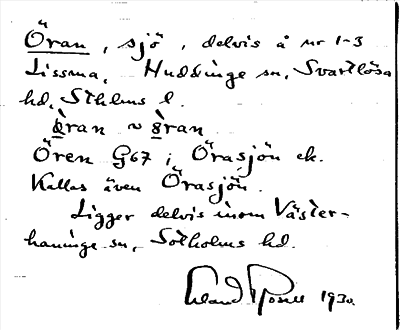 Öran, sjö, delvis å nr 1-3
Lissma, Huddinge sn, Svartlösa
hd, Sthlms l.
ö̀ran ~ ö̀ran
Ören G67 i Örasjön ek.
Kallas även Örasjön.
Ligger delvis inom Väster-
haninge sn, Sotholms hd.
Erland Rosell 1930.